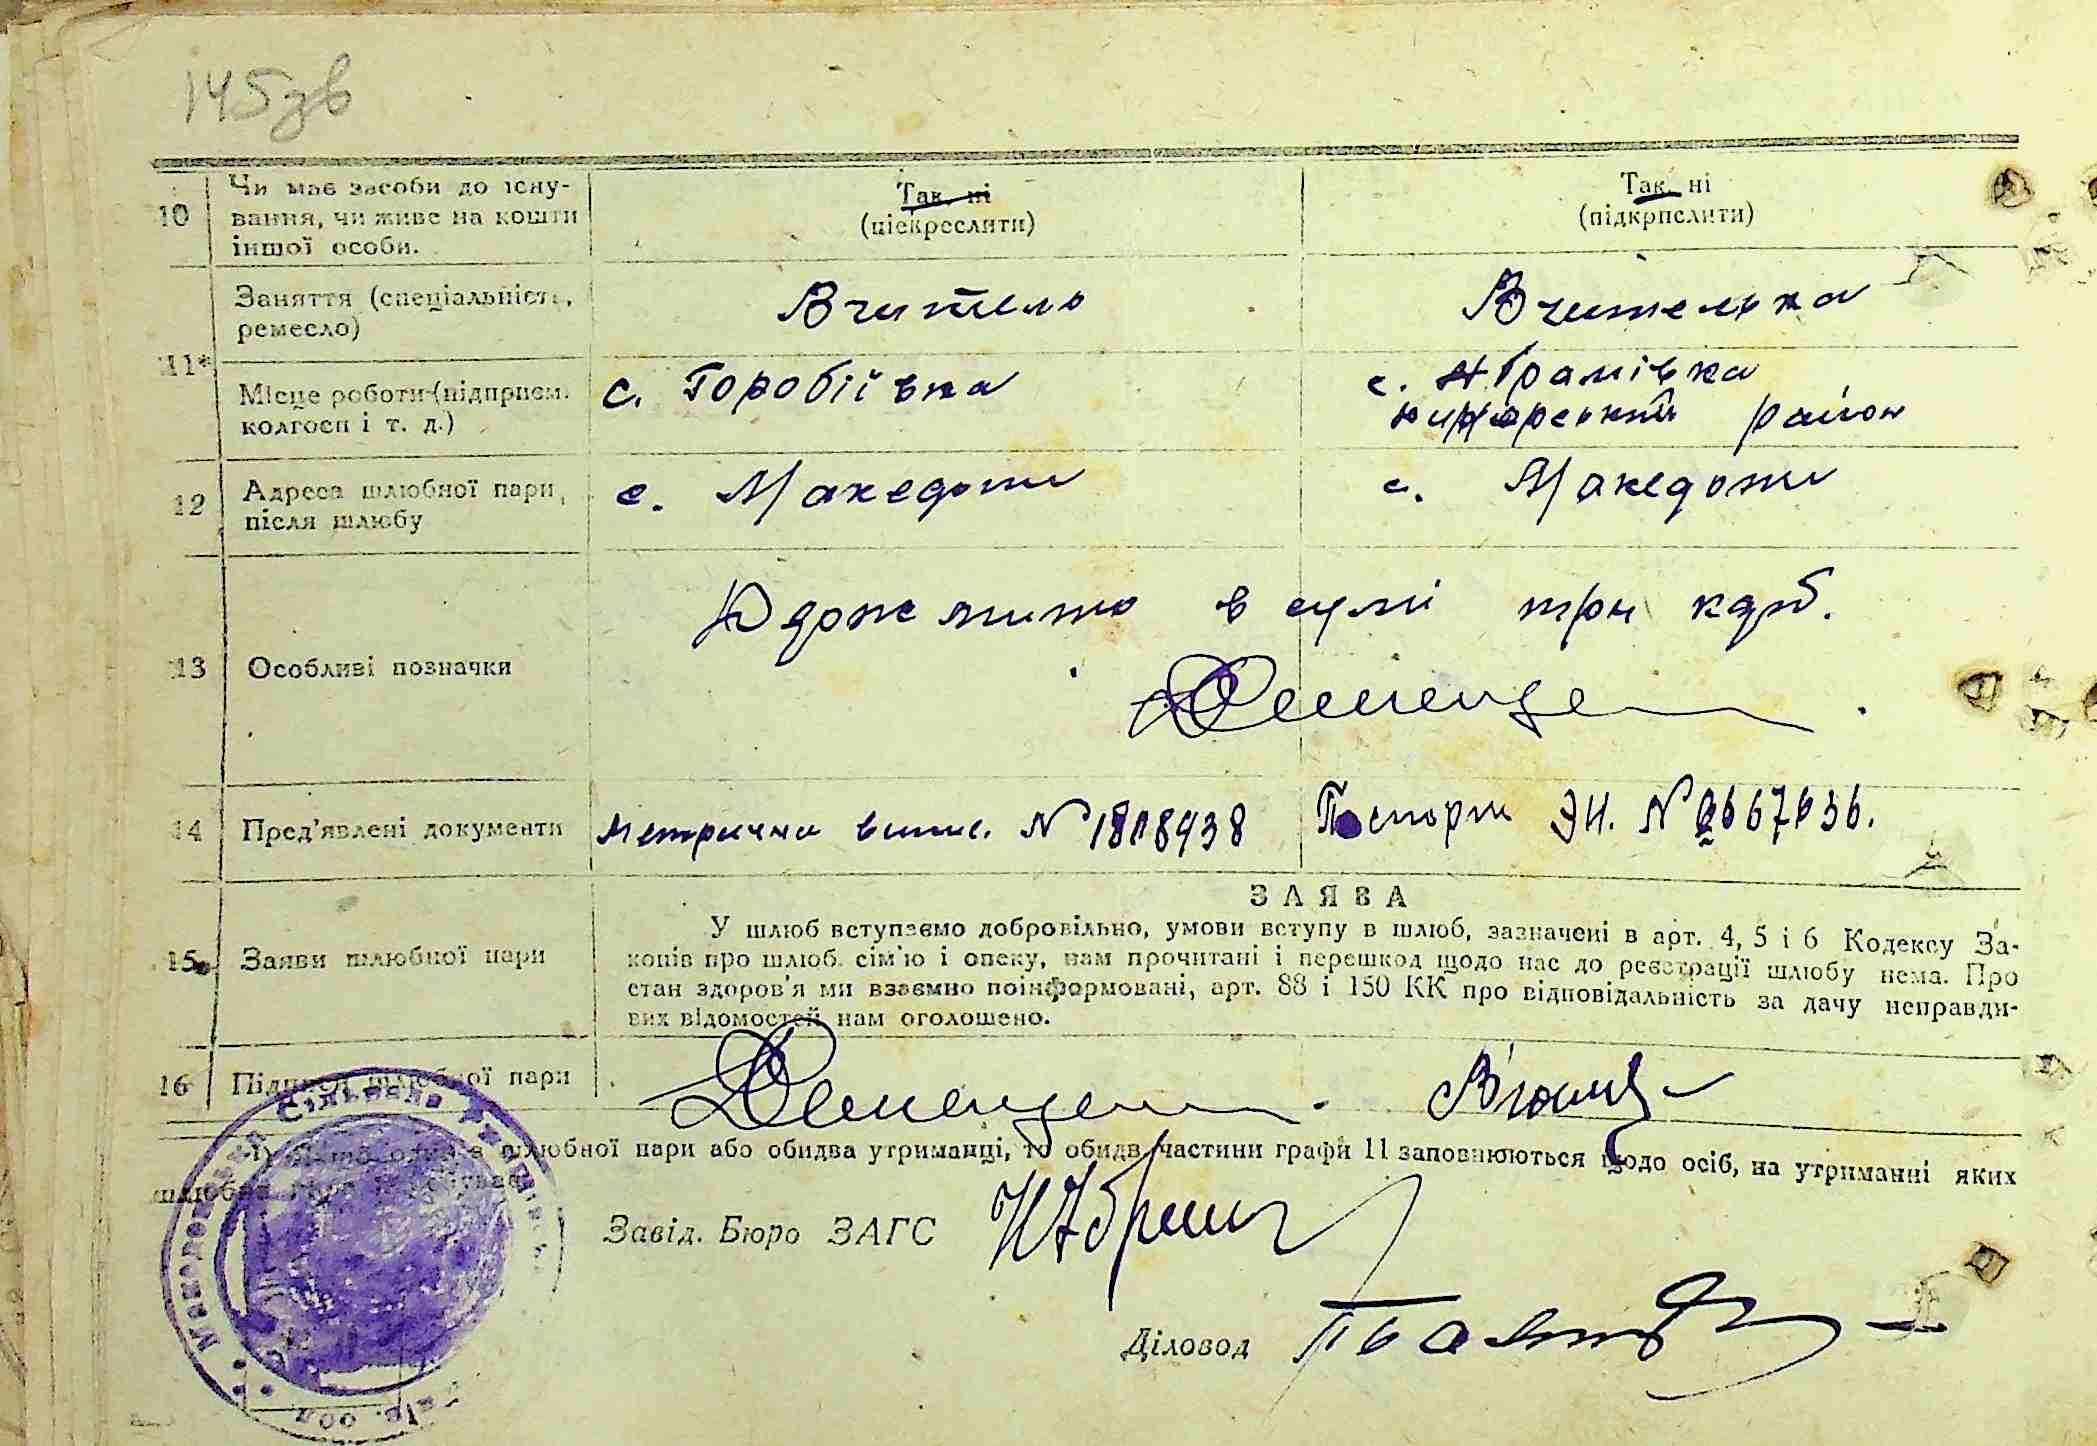 145зв
10 Чи має засоби до існу-
вання, чи живе на кошти
іншої особи.
Так. ні
(піекреслити)
Так. ні
(підкрпслити)
11*
Заняття (спеціальність,
ремесло)
Вчитель
Вчителька
Місце роботи (підприєм.
колгосп і т. д.)
с. Горобіївка
с. Абрамівка
район
12 Адреса шлюбної пари,
після шлюбу
с. Македони
с. Македони
13 Особливі позначки
в сумі три крб.
14 Пред'явлені документи
Метрична випис. №
Паспорт №
15 Заяви шлюбної пари
ЗАЯВА
У шлюб вступаємо добровільно, умови вступу в шлюб, зазначені в арт. 4, 5 і 6 Кодексу За-
конів про шлюб. сім'ю і опеку, нам прочитані і перешкод щодо нас до реєстрації шлюбу нема. Про
стан здоров'я ми взаємно поінформовані, арт. 88 і 150 КК про відповідальність за дачу неправди-
вих відомостей нам оголошено.
16 Підписи шлюбної пари
шлюбної пари або обидва утриманці, то обидві частини графи 11 заповнюються щодо осіб, на утриманні яких
Завід. Бюро ЗАГС
Діловод
Македонська Сільрада
обл.